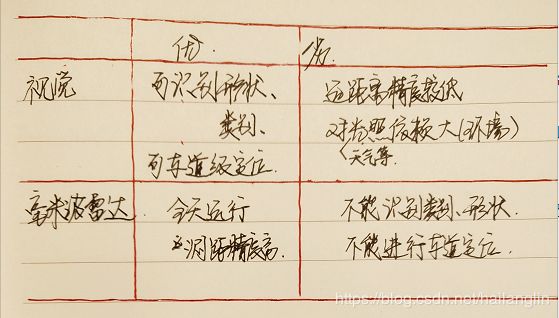 优 劣
视觉 可识别形状、 远距离精度较低
类别、 对光照依赖大(环境)
可车道级定位 (天气等
毫米波雷达 全天运行 不能识别类别、形状.
测距精度高. 不能进行车道定位.
https://blog.csdn.net/hailanglin